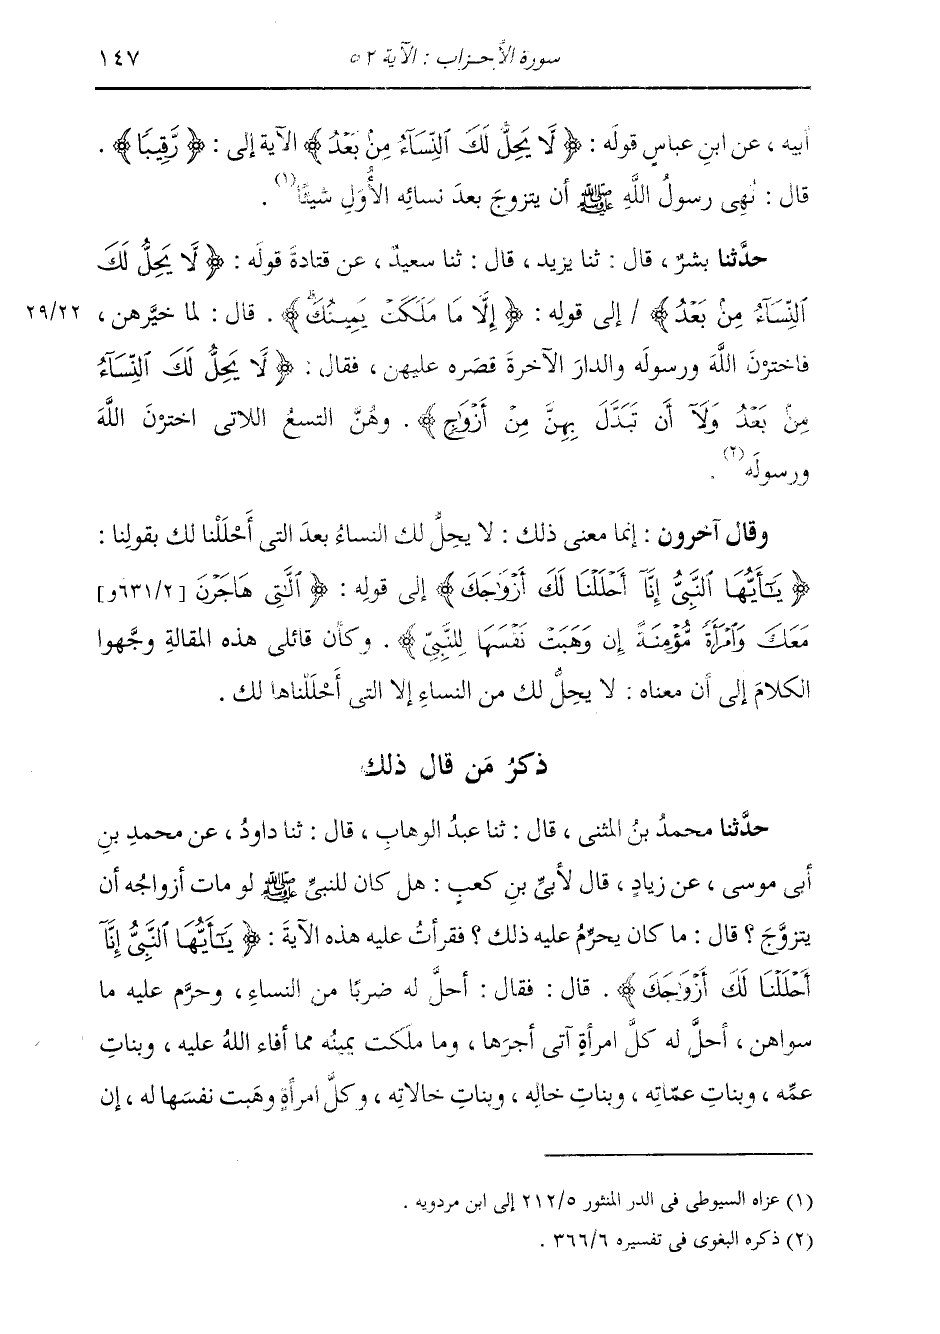 سورة الأحزاب : الآية ٥٢ ١٤٧
أبيه ، عن ابنِ عباسٍ قولَه : ﴿ لَّا يَحِلُّ لَكَ ٱلنِّسَآءُ مِنۢ بَعْدُ ﴾ الآية إلى : ﴿ رَّقِيبًا ﴾ .
قال : نُهِى رسولُ اللَّهِ ﷺ أن يتزوجَ بعدَ نسائِه الأُوَلِ شيئًا(١) .
حدَّثنا بشرٌ ، قال : ثنا يزيد ، قال : ثنا سعيدٌ ، عن قتادةَ قولَه : ﴿ لَّا يَحِلُّ لَكَ
ٱلنِّسَآءُ مِنۢ بَعْدُ ﴾ / إلى قولِه : ﴿ إِلَّا مَا مَلَكَتْ يَمِينُكَ ﴾ . قال : لما خيَّرهن ، ٢٩/٢٢
فاخترْنَ اللَّهَ ورسولَه والدارَ الآخرةَ قصَره عليهن ، فقال : ﴿ لَّا يَحِلُّ لَكَ ٱلنِّسَآءُ
مِنۢ بَعْدُ وَلَآ أَن تَبَدَّلَ بِهِنَّ مِنْ أَزْوَٰجٍ ﴾ . وهُنَّ التسعُ اللاتى اخترْنَ اللَّهَ
ورسولَه(٢) .
وقال آخرون : إنما معنى ذلك : لا يحلُّ لك النساءُ بعدَ التى أَحْلَلْنا لك بقولِنا :
﴿ يَٰٓأَيُّهَا ٱلنَّبِىُّ إِنَّآ أَحْلَلْنَا لَكَ أَزْوَٰجَكَ ﴾ إلى قولِه : ﴿ ٱلَّٰتِى هَاجَرْنَ [٦٣١/٢و]
مَعَكَ وَٱمْرَأَةً مُّؤْمِنَةً إِن وَهَبَتْ نَفْسَهَا لِلنَّبِىِّ ﴾ . وكأن قائلى هذه المقالةِ وجَّهوا
الكلامَ إلى أن معناه : لا يحِلُّ لك من النساءِ إلا التى أَحْلَلْناها لك .
ذكرُ مَن قال ذلك
حدَّثنا محمدُ بنُ المثنى ، قال : ثنا عبدُ الوهابِ ، قال : ثنا داودُ ، عن محمدِ بنِ
أبى موسى ، عن زيادٍ ، قال لأبىِّ بنِ كعبٍ : هل كان للنبىِّ ﷺ لو مات أزواجُه أن
يتزوَّجَ ؟ قال : ما كان يحرُمُ عليه ذلك ؟ فقرأتُ عليه هذه الآيةَ : ﴿ يَٰٓأَيُّهَا ٱلنَّبِىُّ إِنَّآ
أَحْلَلْنَا لَكَ أَزْوَٰجَكَ ﴾ . قال : فقال : أحلَّ له ضربًا من النساءِ ، وحرَّم عليه ما
سواهن ، أحلَّ له كلَّ امرأةٍ آتى أجرَها ، وما ملَكت يمينُه مما أفاء اللهُ عليه ، وبناتِ
عمِّه ، وبناتِ عمّاتِه ، وبناتِ خالِه ، وبناتِ خالاتِه ، وكلَّ امرأةٍ وهَبت نفسَها له ، إن
(١) عزاه السيوطى فى الدر المنثور ٢١٢/٥ إلى ابن مردويه .
(٢) ذكره البغوى فى تفسيره ٣٦٦/٦ .